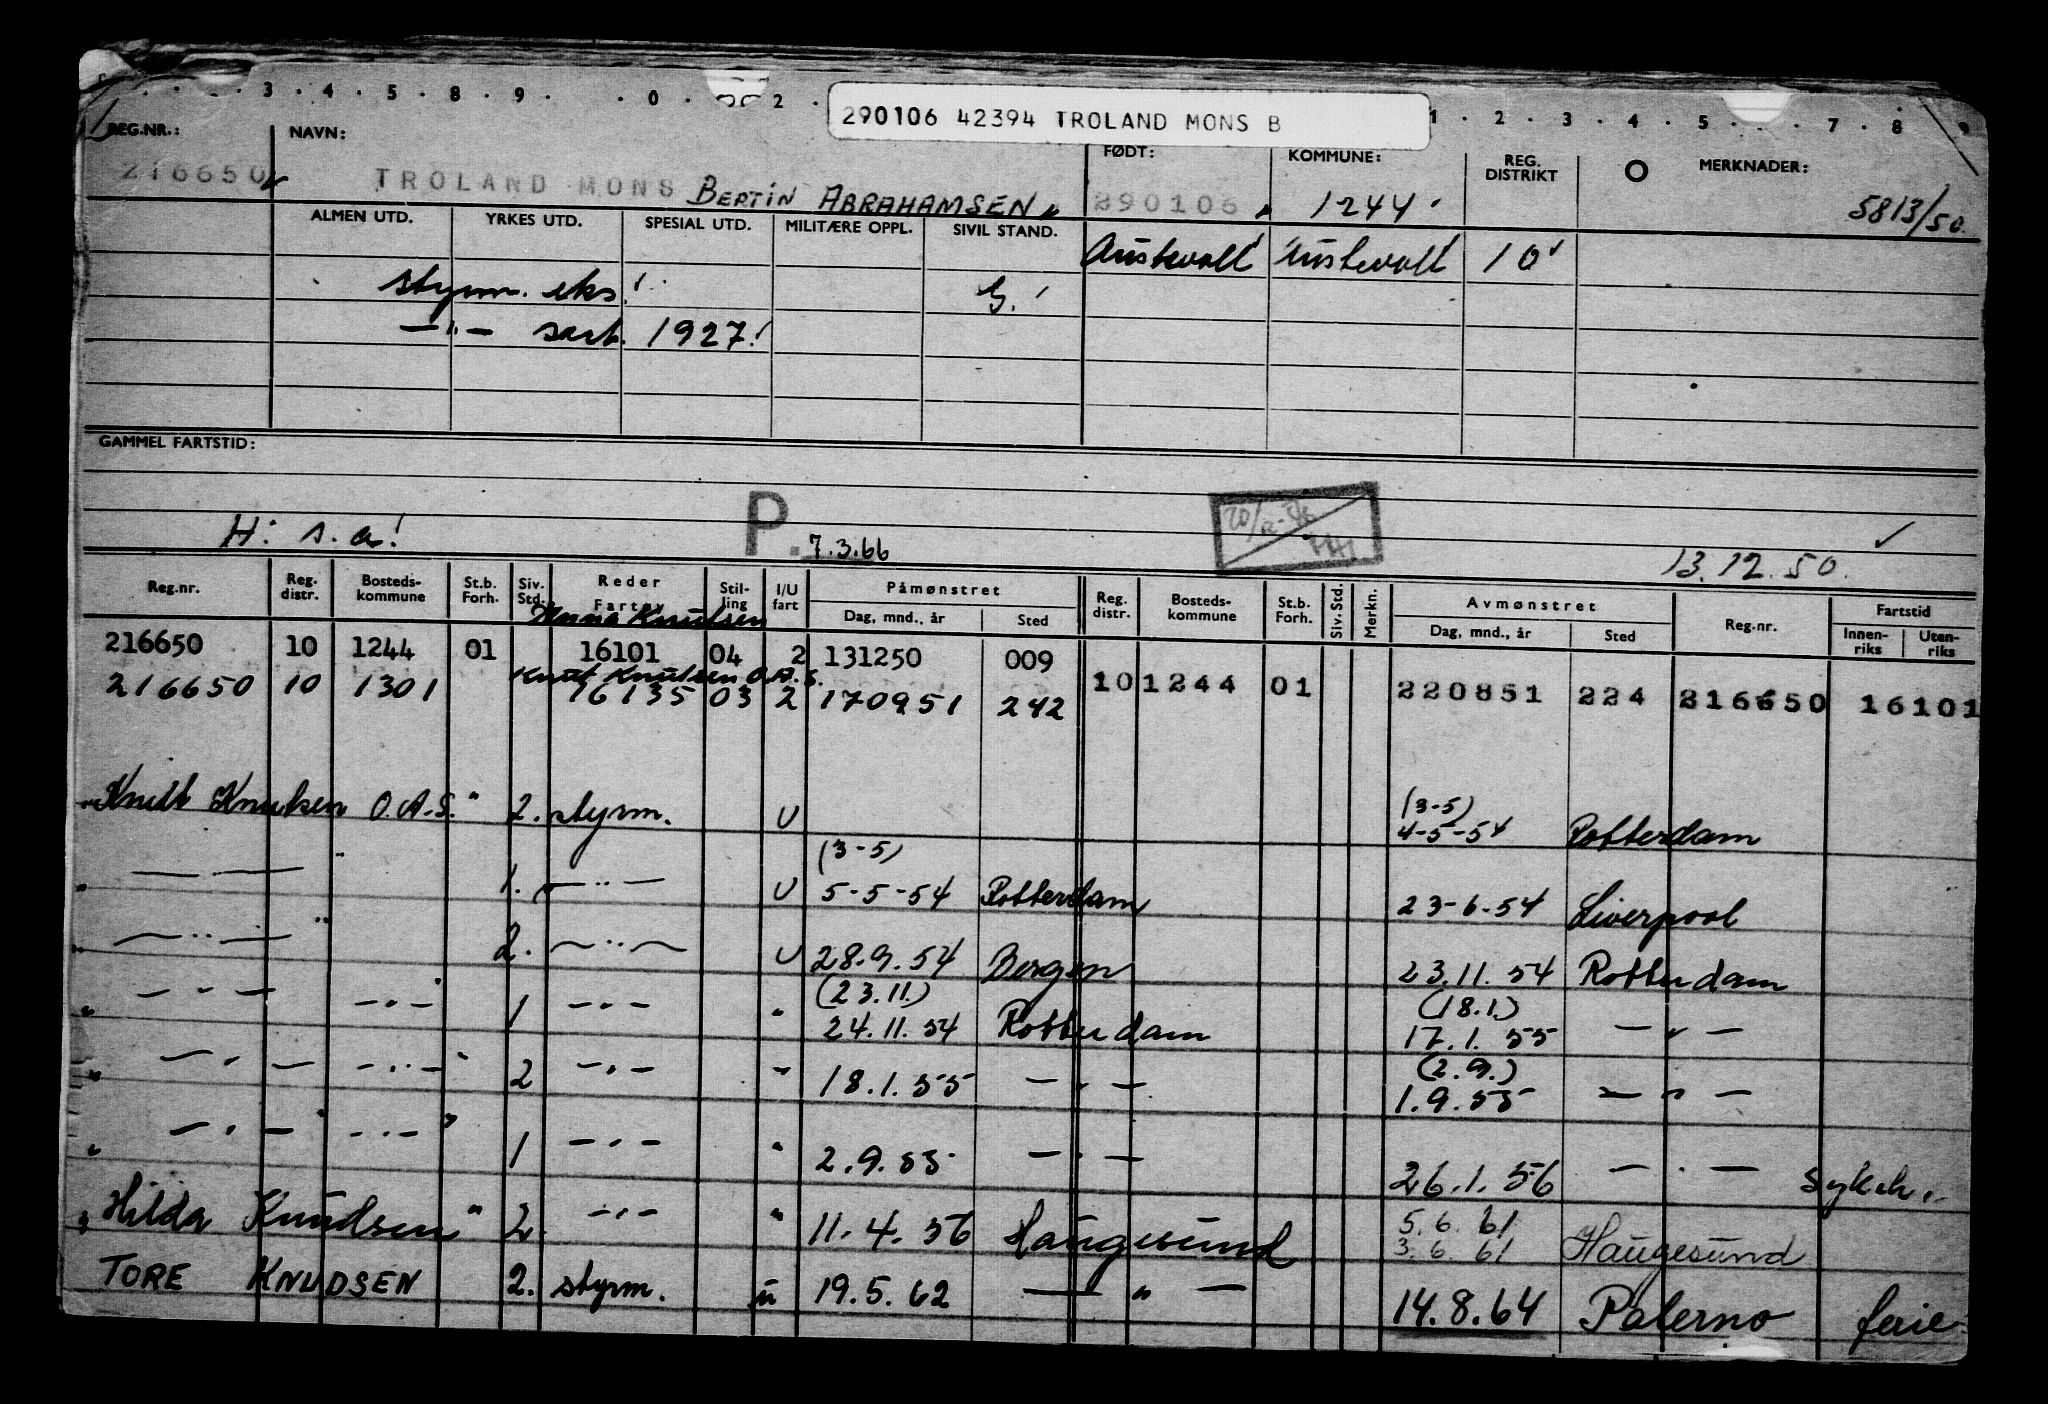 3 . 4 . 5 . 8 . 9 . . 0 . 2 . 1 . 2 . 3 . 4 . 5 . . 7 . 8 . 9
290106 42394 TROLAND MONS B
REG.NR.: NAVN: FØDT: KOMMUNE: REG. DISTRIKT MERKNADER:
216650 TROLAND MONS BERTIN ABRAHAMSEN 290106 1244 5813/50
ALMEN UTD. YRKES UTD. SPESIAL UTD. MILITÆRE OPPL. SIVIL STAND. Austevoll Austevoll 10
styrm. eks. G.
—"— sert. 1927
GAMMEL FARTSTID:
H: s.a! P. 7.3.66 13.12.50.
Reg.nr. Reg. distr. Bosteds- kommune St.b. Forh. Siv. Std. Reder Fartøy Stil- ling I/U fart Påmønstret Dag, mnd., år Sted Reg. distr. Bosteds- kommune St.b. Forh. Siv. Std. Merkn. Avmønstret Dag, mnd., år Sted Reg.nr. Fartstid Innen- riks Uten- riks
Hanna Knudsen
216650 10 1244 01 16101 04 2 131250 009 10 1244 01 220851 224 216650 16101
Knut Knutsen O.A.S.
216650 10 1301 16135 03 2 170951 242
"Knut Knutsen O.A.S." 2. styrm. U (3-5) 4-5-54 Rotterdam
" —"— " 1. —"— U (3-5) 5-5-54 Rotterdam 23-6-54 Liverpool
" —"— " 2. —"— U 28.9.54 Bergen 23.11.54 Rotterdam
" —"— —"— " 1 —"— " (23.11.) 24.11.54 Rotterdam (18.1.) 17.1.55 —"—
" —"— —"— " 2 —"— " 18.1.55 —"— (2.9.) 1.9.55 —"—
" —"— —"— " 1 —"— " 2.9.55 —"— 26.1.56 —"— sykeh.
"Hilda Knudsen" 2. —"— " 11.4.56 Haugesund 5.6.61 3.6.61 Haugesund
TORE KNUDSEN 2. styrm. u 19.5.62 —"— 14.8.64 Palermo ferie